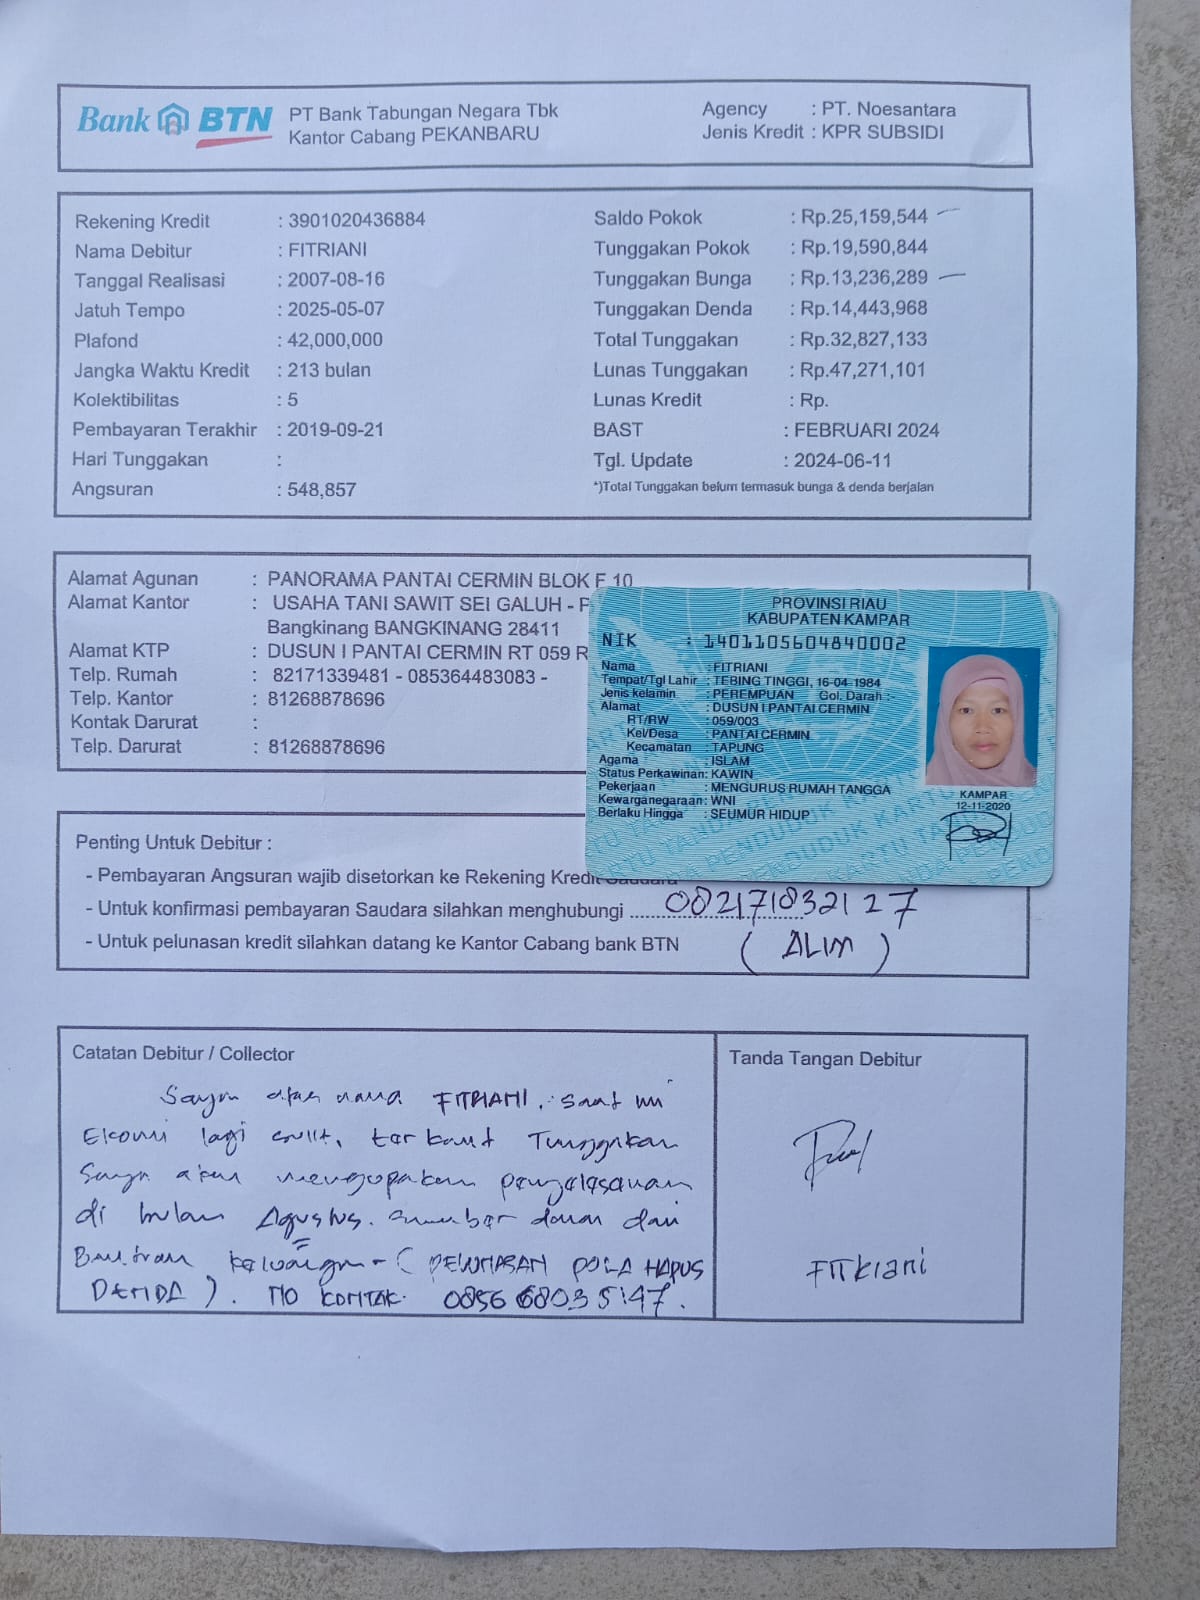 Bank BTN PT Bank Tabungan Negara Tbk
Kantor Cabang PEKANBARU
Agency : PT. Noesantara
Jenis Kredit : KPR SUBSIDI
Rekening Kredit : 3901020436884
Nama Debitur : FITRIANI
Tanggal Realisasi : 2007-08-16
Jatuh Tempo : 2025-05-07
Plafond : 42,000,000
Jangka Waktu Kredit : 213 bulan
Kolektibilitas : 5
Pembayaran Terakhir : 2019-09-21
Hari Tunggakan :
Angsuran : 548,857
Saldo Pokok : Rp.25,159,544
Tunggakan Pokok : Rp.19,590,844
Tunggakan Bunga : Rp.13,236,289
Tunggakan Denda : Rp.14,443,968
Total Tunggakan : Rp.32,827,133
Lunas Tunggakan : Rp.47,271,101
Lunas Kredit : Rp.
BAST : FEBRUARI 2024
Tgl. Update : 2024-06-11
*)Total Tunggakan belum termasuk bunga & denda berjalan
Alamat Agunan : PANORAMA PANTAI CERMIN BLOK F 10
Alamat Kantor : USAHA TANI SAWIT SEI GALUH - P
Bangkinang BANGKINANG 28411
Alamat KTP : DUSUN I PANTAI CERMIN RT 059 R
Telp. Rumah : 82171339481 - 085364483083 -
Telp. Kantor : 81268878696
Kontak Darurat :
Telp. Darurat : 81268878696
PROVINSI RIAU
KABUPATEN KAMPAR
NIK : 1401105604840002
Nama : FITRIANI
Tempat/Tgl Lahir : TEBING TINGGI, 16-04-1984
Jenis kelamin : PEREMPUAN Gol. Darah :-
Alamat : DUSUN I PANTAI CERMIN
RT/RW : 059/003
Kel/Desa : PANTAI CERMIN
Kecamatan : TAPUNG
Agama : ISLAM
Status Perkawinan: KAWIN
Pekerjaan : MENGURUS RUMAH TANGGA
Kewarganegaraan: WNI
Berlaku Hingga : SEUMUR HIDUP
KAMPAR
12-11-2020
Penting Untuk Debitur :
- Pembayaran Angsuran wajib disetorkan ke Rekening Kredit Saudara
- Untuk konfirmasi pembayaran Saudara silahkan menghubungi ..... 082171832127
- Untuk pelunasan kredit silahkan datang ke Kantor Cabang bank BTN
( ALIM )
Catatan Debitur / Collector
Saya atas nama FITRIANI. saat ini
Ekonmi lagi sulit, terkait Tunggakan
Saya akan mengopakan penyelesaian
di bulan Agustus. sumber dana dari
Bantuan keluarga - ( PELUNASAN POLA HAPUS
DENDA ). NO KONTAK. 085668035147.
Tanda Tangan Debitur
FITRIANI